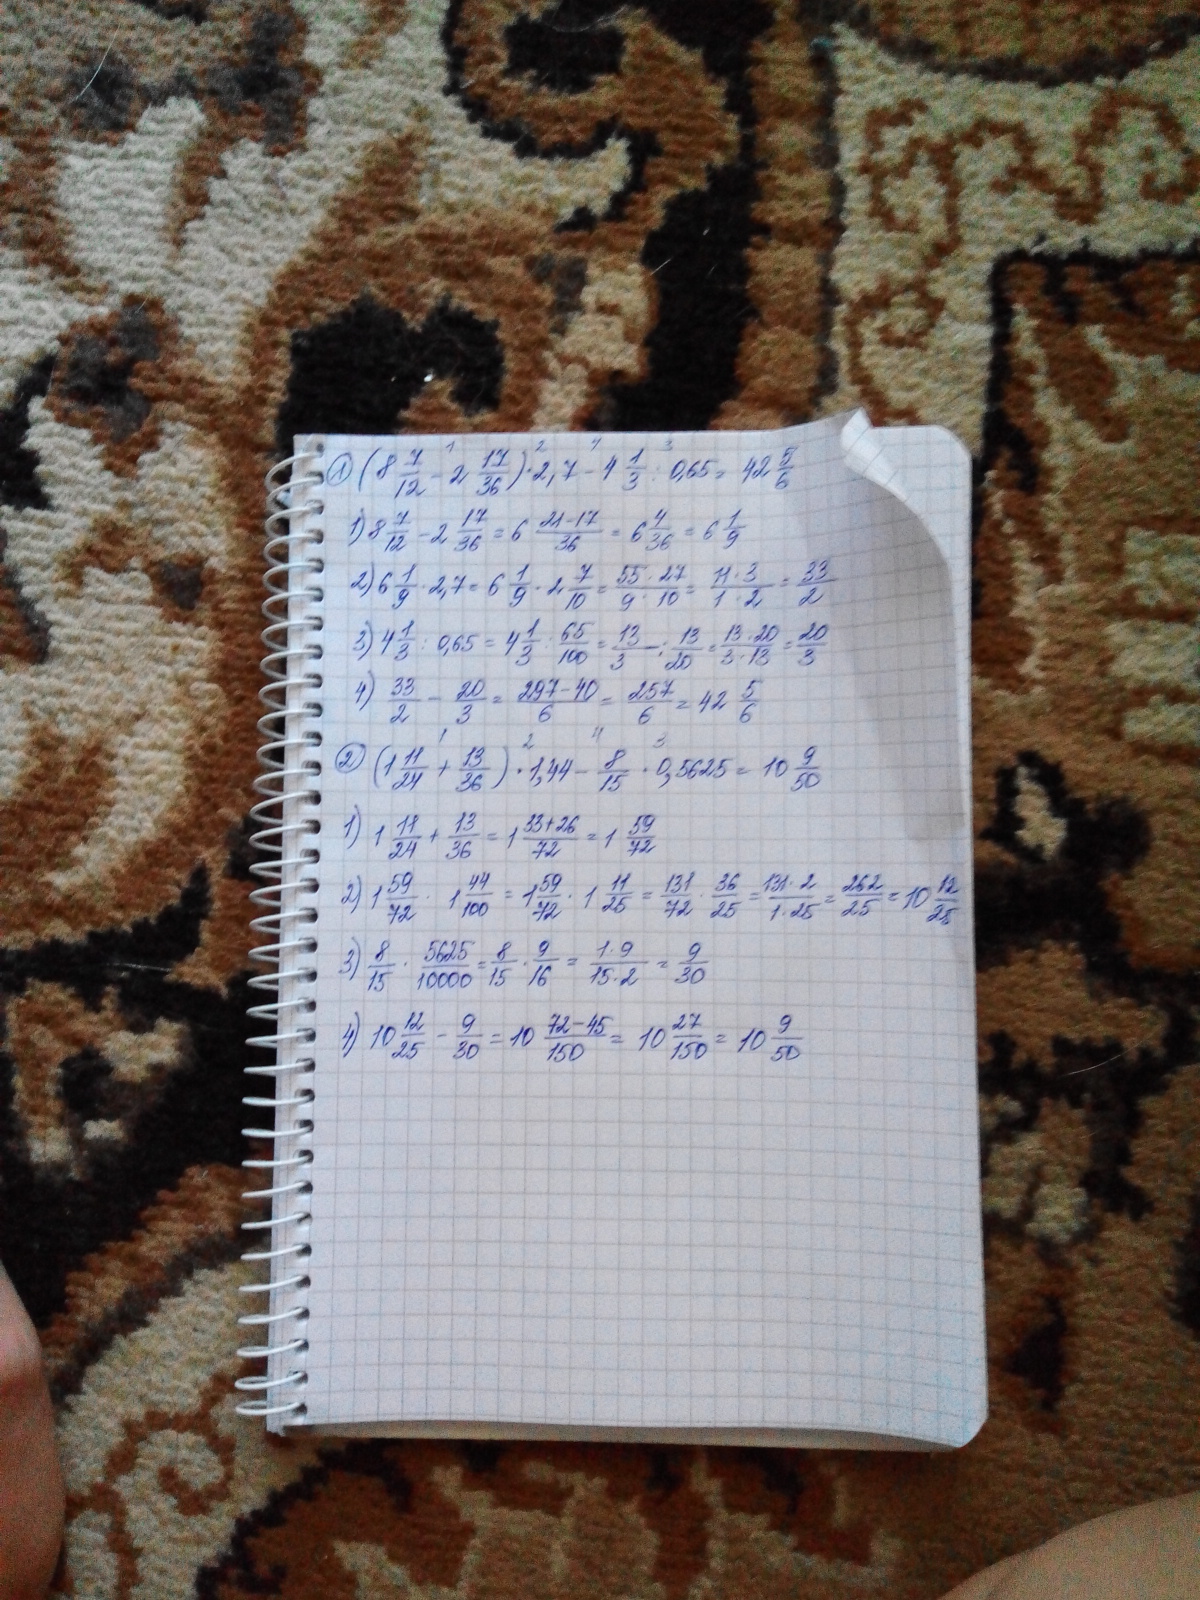 ① (8 7/12 - 2 17/36) · 2,7 - 4 1/3 : 0,65 = 42 5/6
1) 8 7/12 - 2 17/36 = 6 21-17/36 = 6 4/36 = 6 1/9
2) 6 1/9 · 2,7 = 6 1/9 · 2 7/10 = 55·27/9·10 = 11·3/1·2 = 33/2
3) 4 1/3 : 0,65 = 4 1/3 : 65/100 = 13/3 : 13/20 = 13·20/3·13 = 20/3
4) 33/2 - 20/3 = 297-40/6 = 257/6 = 42 5/6
② (1 11/24 + 13/36) · 1,44 - 8/15 · 0,5625 = 10 9/50
1) 1 11/24 + 13/36 = 1 33+26/72 = 1 59/72
2) 1 59/72 · 1 44/100 = 1 59/72 · 1 11/25 = 131/72 · 36/25 = 131·2/1·25 = 262/25 = 10 12/25
3) 8/15 · 5625/10000 = 8/15 · 9/16 = 1·9/15·2 = 9/30
4) 10 12/25 - 9/30 = 10 72-45/150 = 10 27/150 = 10 9/50